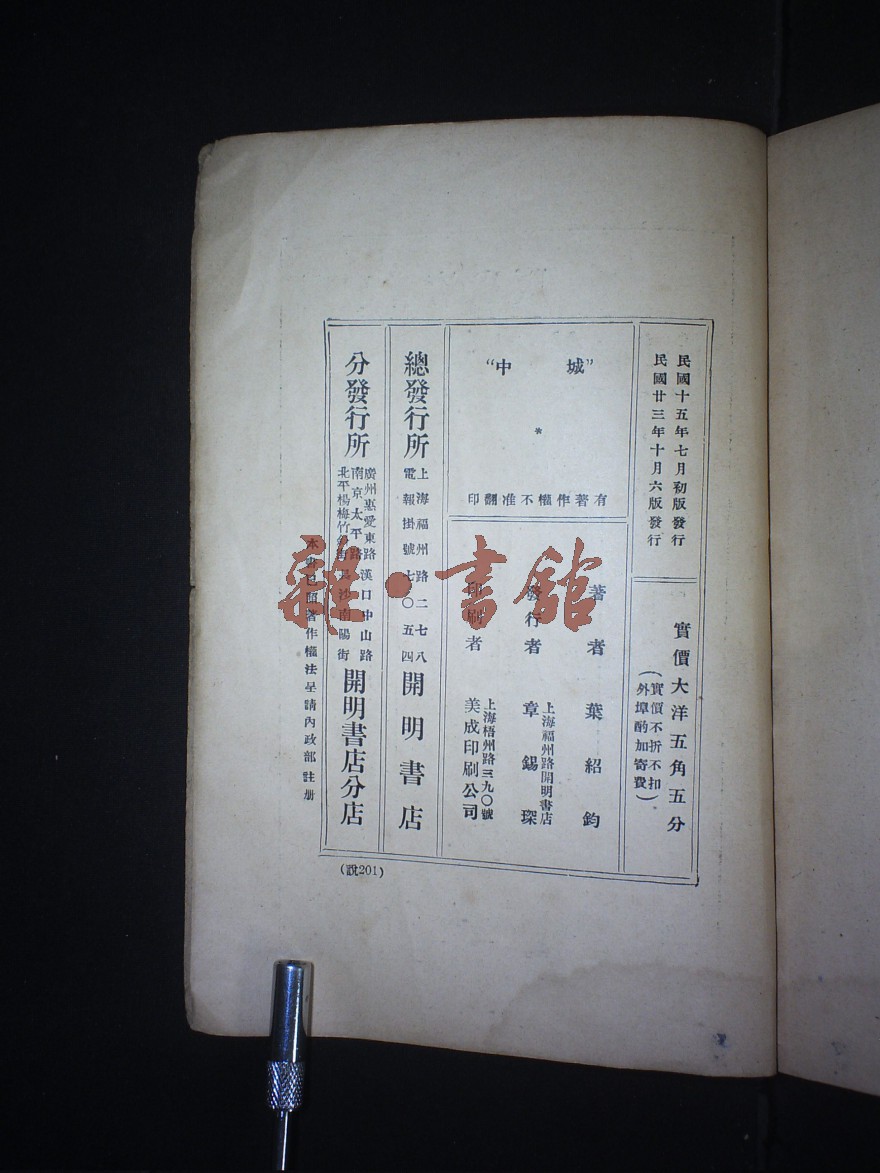 民國十五年七月初版發行
民國廿三年十月六版發行
實價大洋五角五分
（實價不折不扣
外埠酌加寄費）
“城中”
*
有著作權不准翻印
著者 葉紹鈞
發行者 上海福州路開明書店
章錫琛
印刷者 上海梧州路三九〇號
美成印刷公司
總發行所 上海福州路二七八
電報掛號七〇五四
開明書店
分發行所 廣州惠愛東路 漢口中山路
南京太平路 長沙南陽街
北平楊梅竹斜街
開明書店分店
本書已照著作權法呈請內政部註册
(說201)
雜·書館